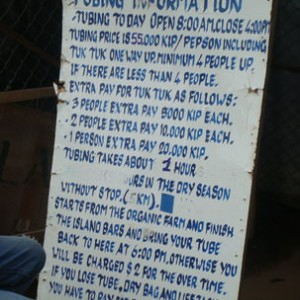 TUBING INFORMATION
TUBING TO DAY OPEN 8:00AM.CLOSE 4:00PM
TUBING PRICE IS 55.000 KIP/ PEPSON INCLUDING
TUK TUK ONE WAY UP. MINIMUM 4 PEOPLE UP.
IF THERE ARE LESS THAN 4 PEOPLE.
EXTRA PAY FOR TUK TUK AS FOLLOWS:
• 3 PEOPLE EXTRA PAY 8000 KIP EACH.
• 2 PEOPLE EXTRA PAY 10.000 KIP EACH.
• 1 PERSON EXTRA PAY 20.000 KIP.
TUBING TAKES ABOUT 1 HOUR
IN THE DRY SEASON
WITHOUT STOP. (5KM).
STARTS FROM THE ORGANIC FARM AND FINISH
THE ISLAND BARS AND BRING YOUR TUBE
BACK TO HERE AT 6:00 PM. OTHERWISE YOU
WILL BE CHARGED $ 2 FOR THE OVER TIME.
IF YOU LOSE TUBE, DRY BAG AND
YOU HAVE TO PAY